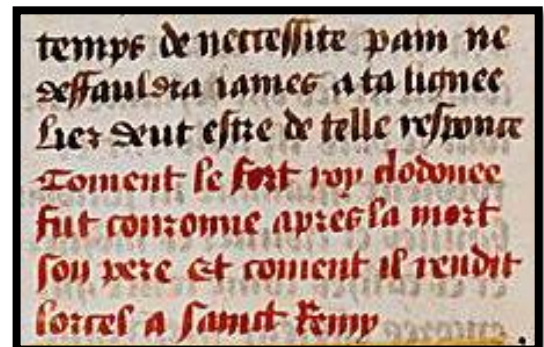 temps de necessite pain ne
deffauldra iames a ta lignee
liez deut estre de telle responce
Coment le fort roy clodouee
fut couronne apres la mort
son pere Et coment il rendit
lorcel a sainct Remy